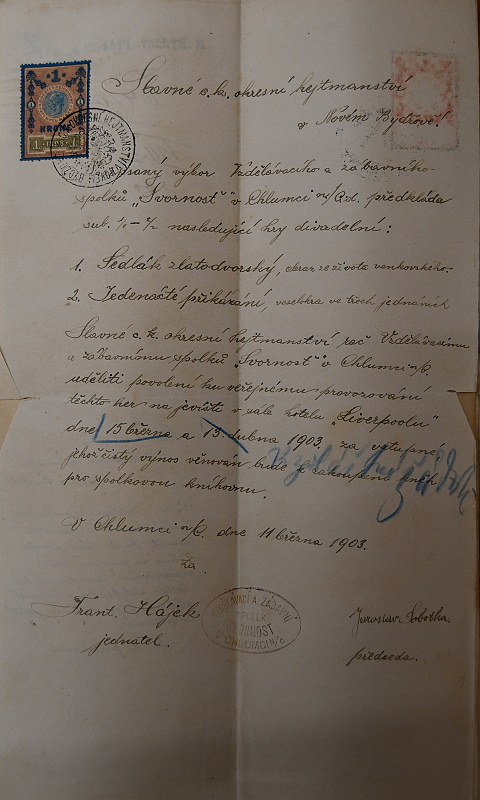 1
KRONE
1898
Slavné c. k. okresní hejtmanství
v Novém Bydžově!
psaný výbor Vzdělávacího a zábavního
spolku „Svornost" v Chlumci n/C. předkládá
sub. 1/. – 2/. následující hry divadelní:
1. Sedlák zlatodvorský, obraz ze života venkovského.
2. Jedenácté přikázání, veselohra ve třech jednáních
Slavné c. k. okresní hejtmanství rač Vzdělávacímu
a zábavnímu spolku „Svornost" v Chlumci n/C.
uděliti povolení ku veřejnému provozování
těchto her na jevišti v sále hotelu „Liverpoolu"
dne 15 března a 13. dubna 1903. za vstupné
jehož čistý výnos věnován bude k zakoupení knih
pro spolkovou knihovnu.
V Chlumci n/C. dne 11 března 1903.
Za
Frant. Hájek
jednatel.
VZDĚLÁVACÍ A ZÁBAVNÍ
SPOLEK
SVORNOST
V CHLUMCI n/C
Jaroslav Sobotka.
předseda.